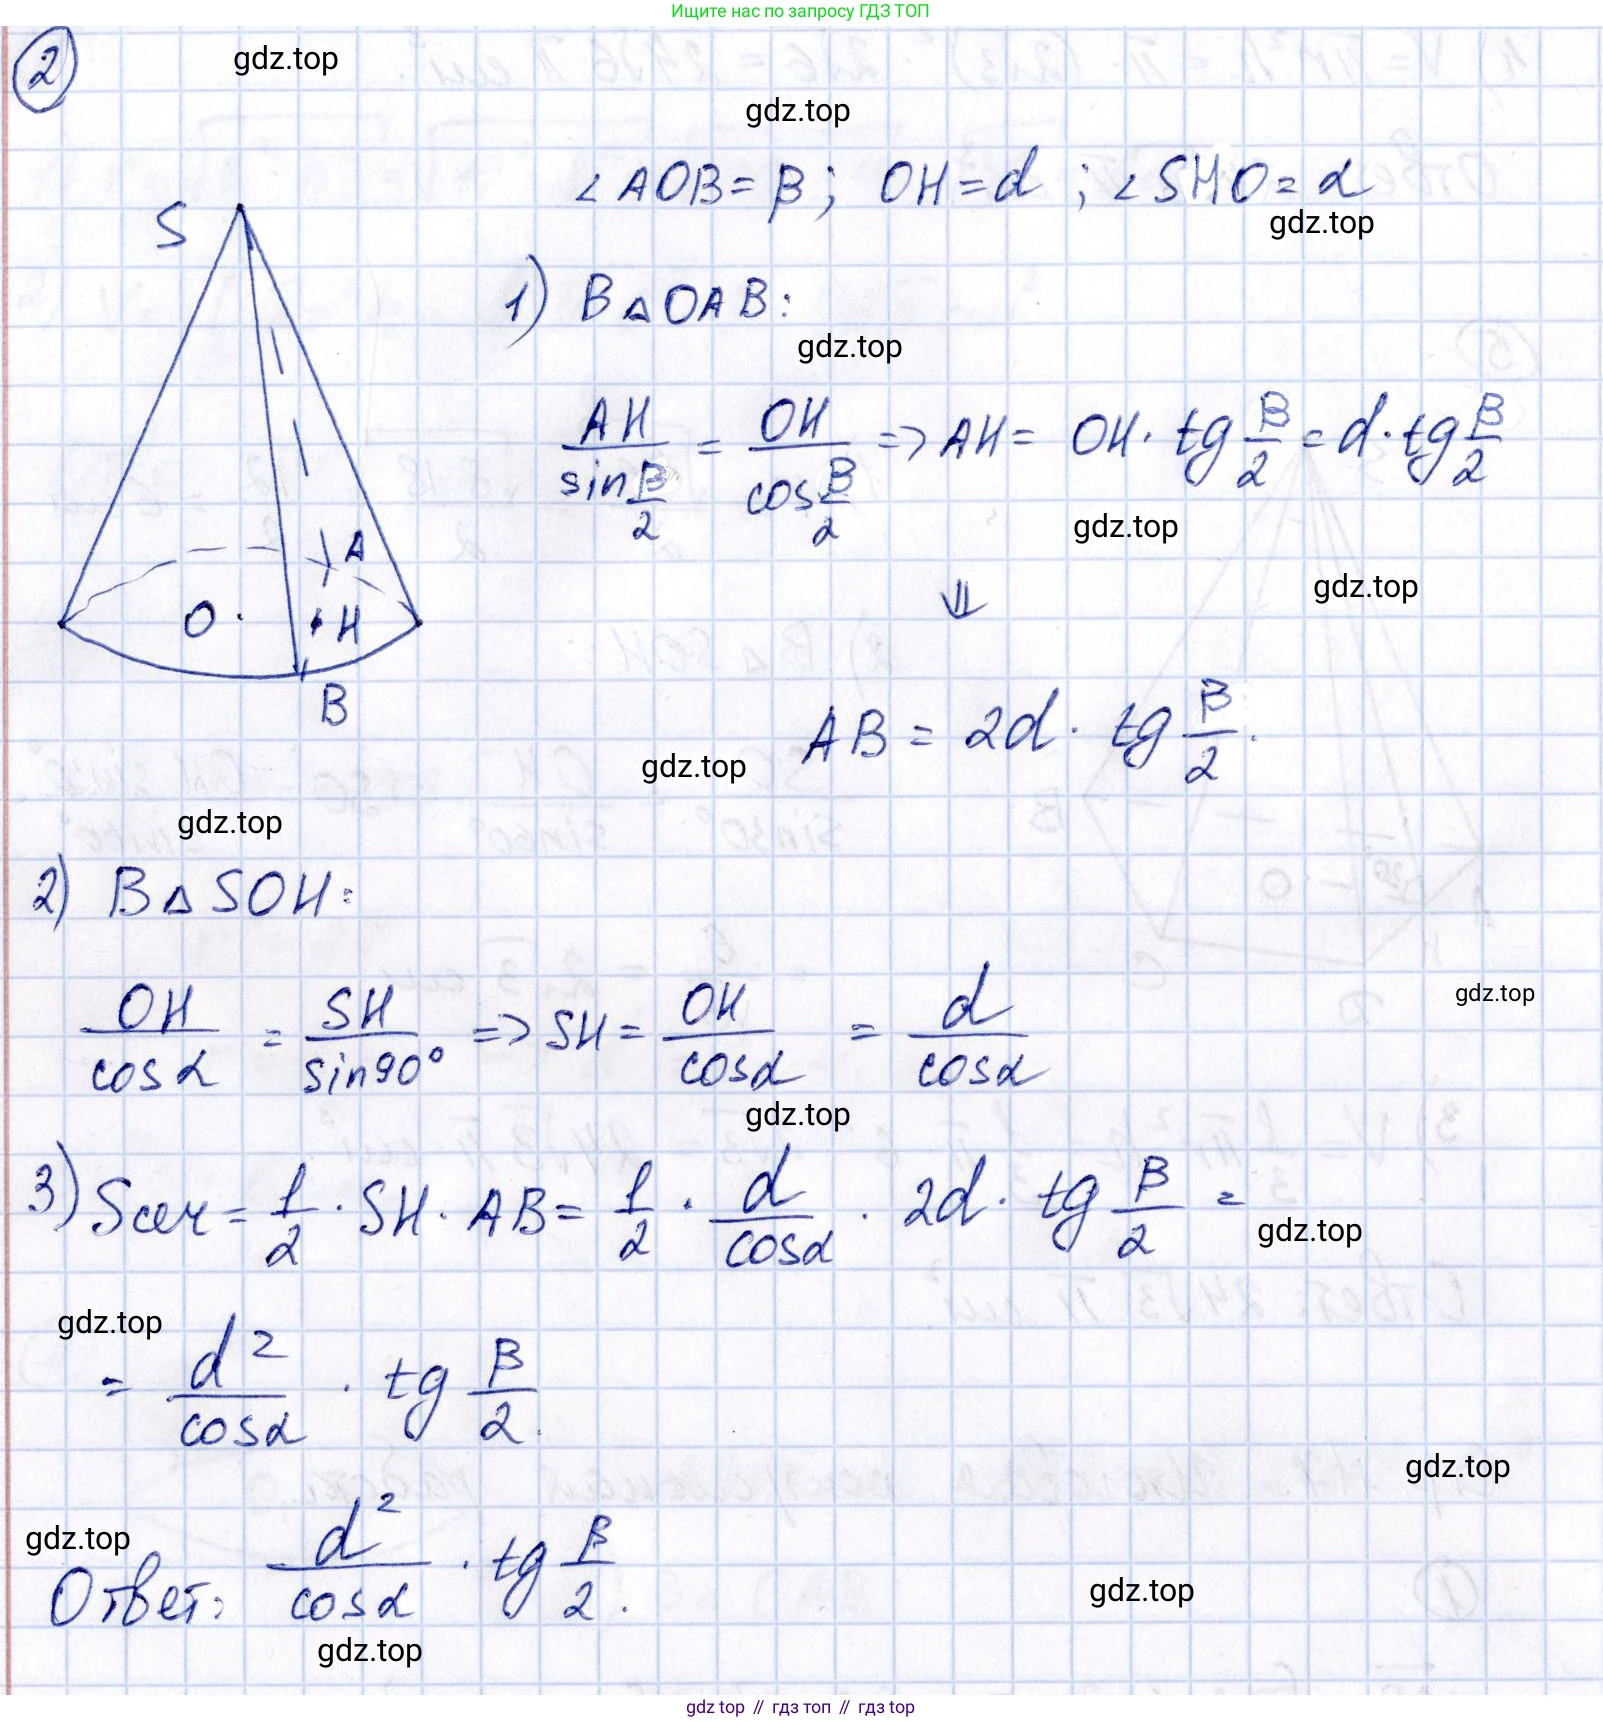 Ищите нас по запросу ГДЗ ТОП
2
gdz.top
gdz.top
∠AOB = β; OH = d ; ∠SHO = α
gdz.top
S
1) В △OAB:
gdz.top
AH/sin β/2 = OH/cos β/2 => AH = OH · tg β/2 = d · tg β/2
gdz.top
A
gdz.top
O
H
⇓
B
AB = 2d · tg β/2.
gdz.top
gdz.top
2) В △ SOH:
OH/cosα = SH/sin90° => SH = OH/cosα = d/cosα
gdz.top
gdz.top
3) Sсеч = 1/2 · SH · AB = 1/2 · d/cosα · 2d · tg β/2 =
gdz.top
gdz.top
= d²/cosα · tg β/2.
gdz.top
gdz.top
Ответ: d²/cosα · tg β/2.
gdz.top
gdz.top
gdz top // гдз топ // гдз top